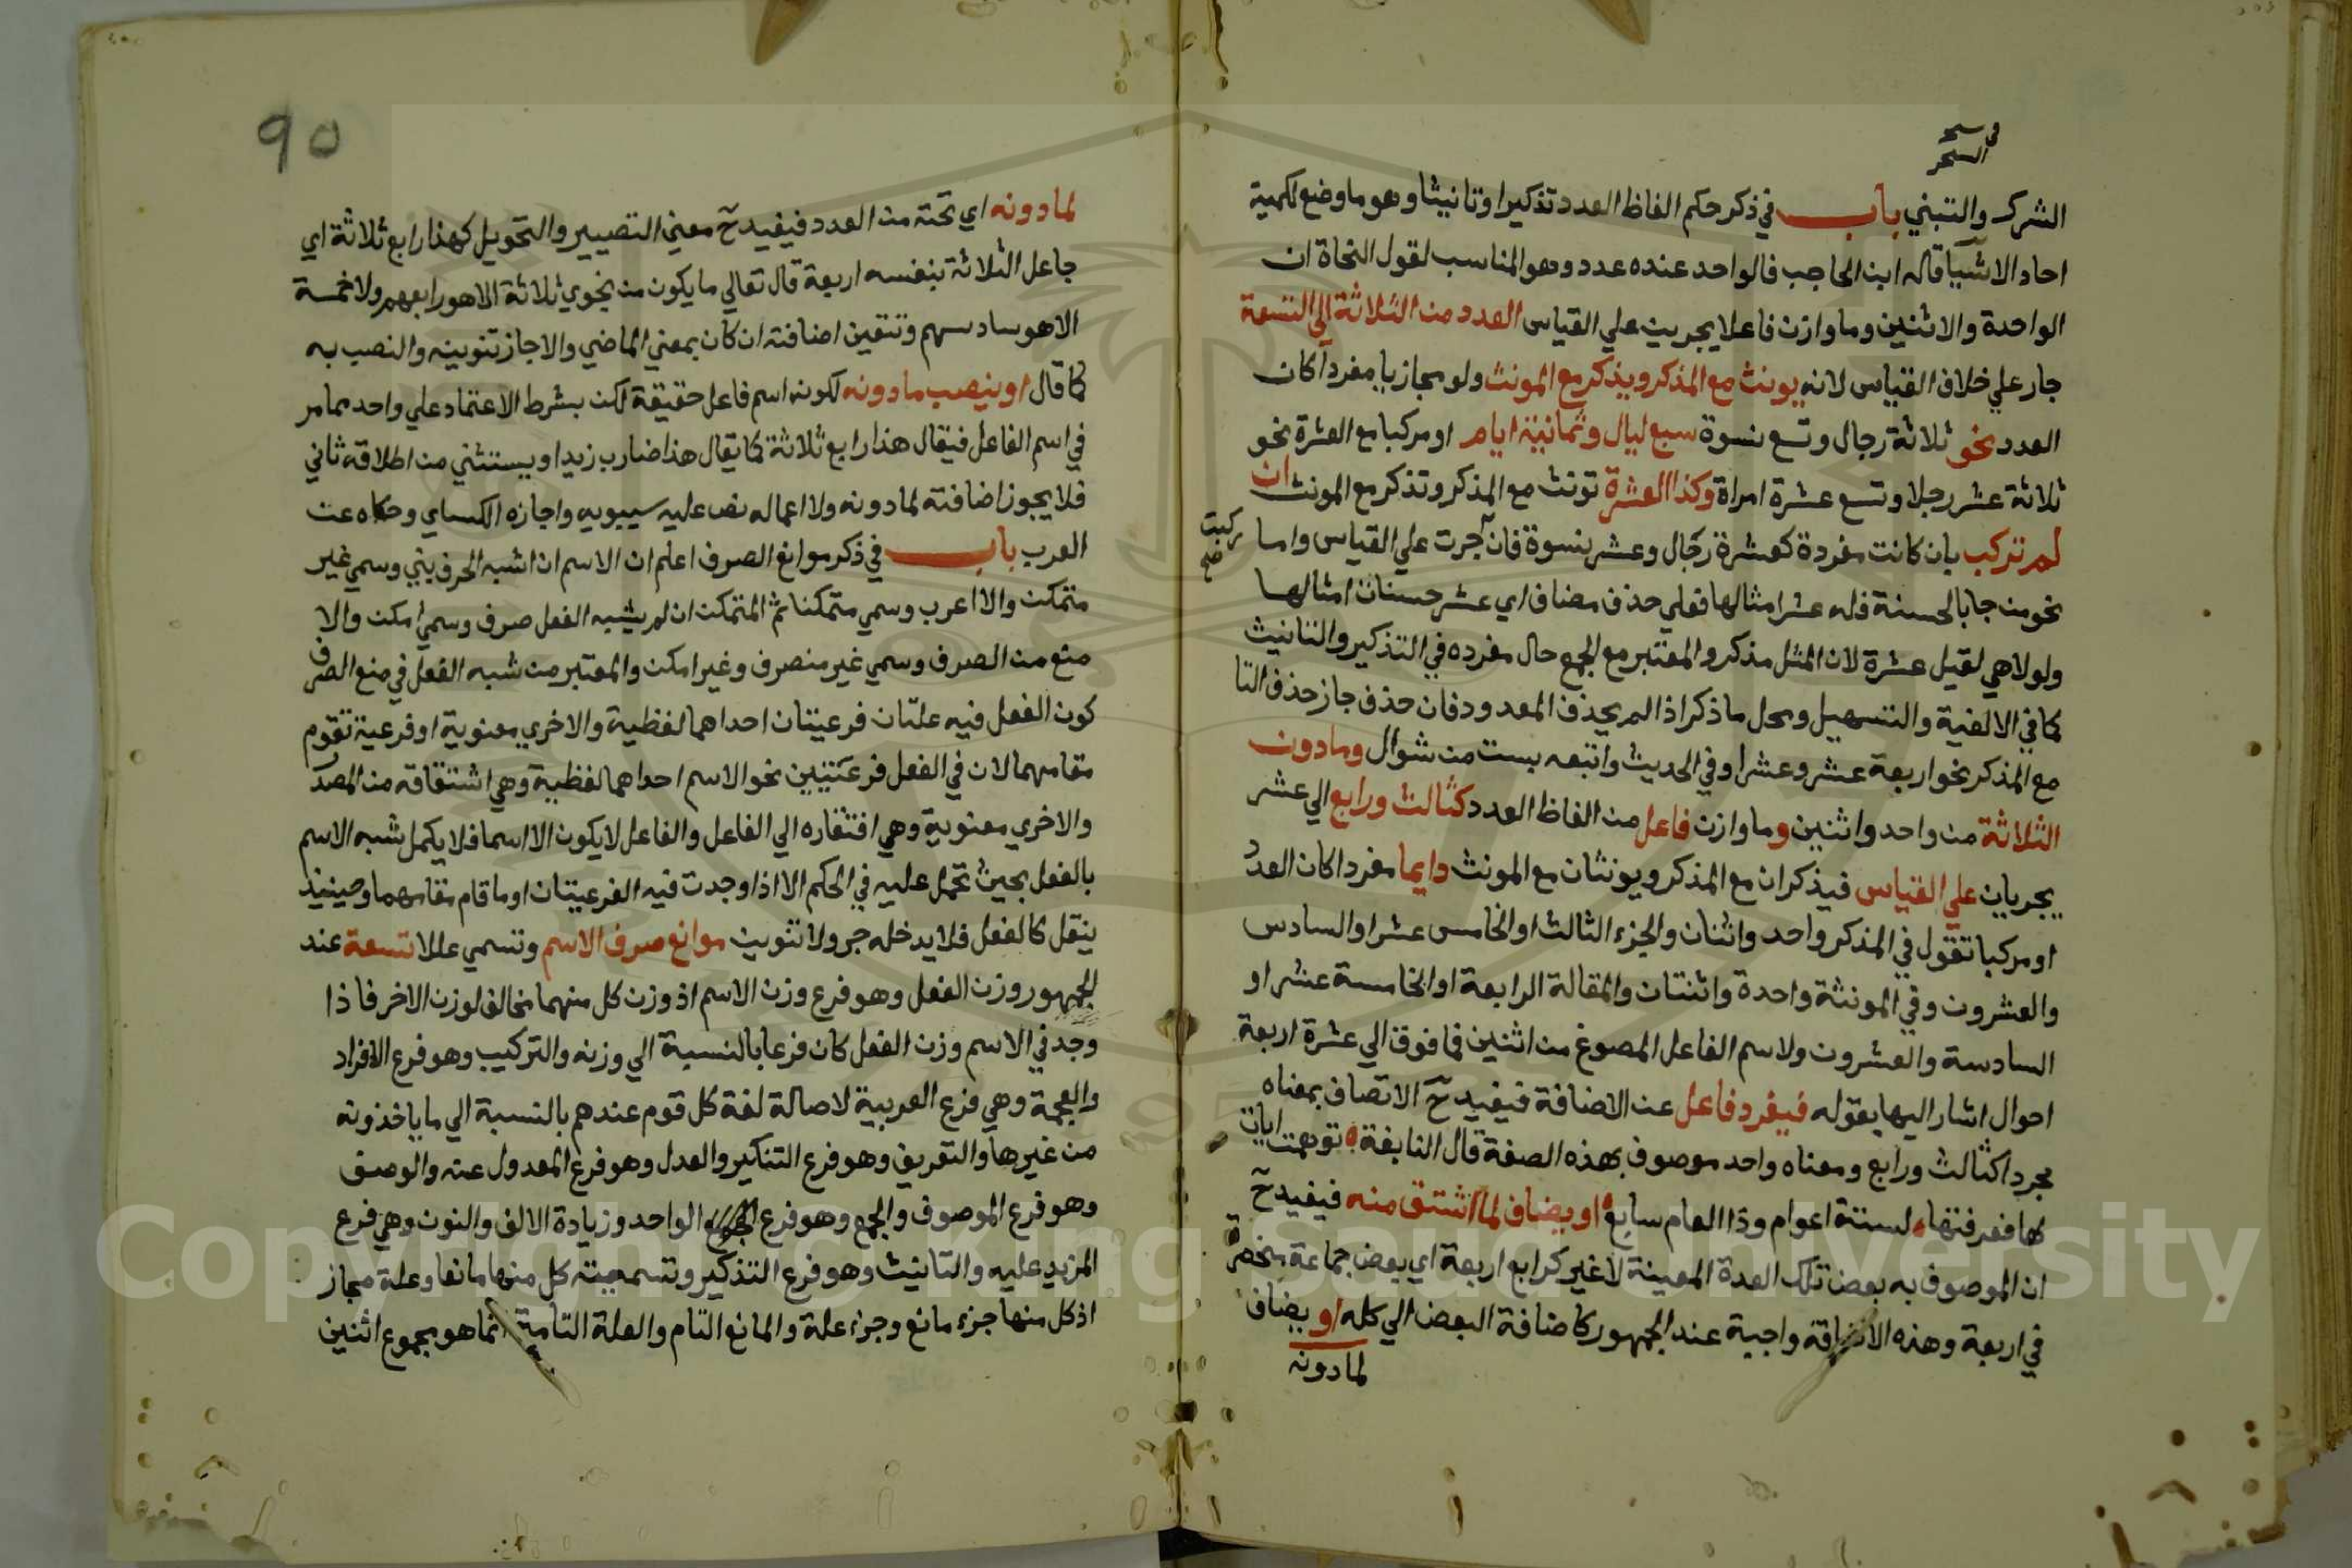 في نسخة
السحر
الشرك والتبني باب في ذكر حكم الفاظ العدد تذكيرا وتانيثا وهو ما وضع لكمية
احاد الاشيا قاله ابن الحاجب فالواحد عنده عدد وهو المناسب لقول النحاة ان
الواحدة والاثنين وما وازن فاعلا يجرين علي القياس العدد من الثلاثة الي التسعة
جار علي خلاف القياس لانه يونث مع المذكر ويذكر مع المونث ولو مجازيا مفردا كان
العدد نحو ثلاثة رجال وتسع نسوة سبع ليال وثمانية ايام او مركبا مع العشرة نحو
ثلاثة عشر رجلا وتسع عشرة امراة وكذا العشرة تونث مع المذكر وتذكر مع المونث ان
لم تركب بان كانت مفردة كعشرة رجال وعشر نسوة فان جرت علي القياس واما
ركبت صح
نحو من جا بالحسنة فله عشر امثالها فعلي حذف مضاف اي عشر حسنات امثالها
ولولا هي لقيل عشرة لان المثل مذكر والمعتبر مع الجمع حال مفرده في التذكير والتانيث
كما في الالفية والتسهيل ومحل ما ذكر اذا لم يحذف المعدود فان حذف جاز حذف التا
مع المذكر نحو اربعة عشر وعشرا وفي الحديث واتبعه بست من شوال وما دون
الثلاثة من واحد واثنين وما وازن فاعل من الفاظ العدد كثالث ورابع الي عشر
يجريان علي القياس فيذكران مع المذكر ويونثان مع المونث دايما مفردا كان العدد
او مركبا تقول في المذكر واحد واثنان والجزء الثالث او الخامس عشر او السادس
والعشرون وفي المونثة واحدة واثنتان والمقالة الرابعة او الخامسة عشر او
السادسة والعشرون ولاسم الفاعل المصوغ من اثنين فما فوق الي عشرة اربعة
احوال اشار اليها بقوله فيفرد فاعل عن الاضافة فيفيد ح الاتصاف بمعناه
مجردا كثالث ورابع ومعناه واحد موصوف بهذه الصفة قال النابغة توهمت ايات
لها فعرفتها لستة اعوام وذا العام سابع او يضاف لما اشتق منه فيفيد ح
ان الموصوف به بعض تلك العدة المعينة لا غير كرابع اربعة اي بعض جماعة منحصرة
في اربعة وهذه الاضافة واجبة عند الجمهور كاضافة البعض الي كله او يضاف
لما دونه
90
لما دونه اي تحته من العدد فيفيد ح معني التصيير والتحويل كهذا رابع ثلاثة اي
جاعل الثلاثة بنفسه اربعة قال تعالي ما يكون من نجوي ثلاثة الا هو رابعهم ولا خمسة
الا هو سادسهم وتتعين اضافته ان كان بمعني الماضي والا جاز تنوينه والنصب به
كما قال او ينصب ما دونه لكونه اسم فاعل حقيقة لكن بشرط الاعتماد علي واحد مما مر
في اسم الفاعل فيقال هذا رابع ثلاثة كما يقال هذا ضارب زيدا ويستثني من اطلاقه ثاني
فلا يجوز اضافته لما دونه ولا اعماله نص عليه سيبويه واجازه الكساي وحكاه عن
العرب باب في ذكر موانع الصرف اعلم ان الاسم ان اشبه الحرف بني وسمي غير
متمكن والا اعرب وسمي متمكنا ثم المتمكن ان لم يشبه الفعل صرف وسمي امكن والا
منع من الصرف وسمي غير منصرف وغير امكن والمعتبر من شبه الفعل في منع الصرف
كون الفعل فيه علتان فرعيتان احداهما لفظية والاخري معنوية او فرعية تقوم
مقامهما لان في الفعل فرعيتين نحو الاسم احداهما لفظية وهي اشتقاقه من المصدر
والاخري معنوية وهي افتقاره الي الفاعل والفاعل لا يكون الا اسما فلا يكمل شبه الاسم
بالفعل بحيث تحمل عليه في الحكم الا اذا وجدت فيه الفرعيتان او ما قام مقامهما وحينيذ
ينقل كالفعل فلا يدخله جر ولا تنوين موانع صرف الاسم وتسمي عللا تسعة عند
الجمهور وزن الفعل وهو فرع وزن الاسم اذ وزن كل منهما مخالف لوزن الاخر فاذا
وجد في الاسم وزن الفعل كان فرعا بالنسبة الي وزنه والتركيب وهو فرع الافراد
والعجمة وهي فرع العربية لاصالة لغة كل قوم عندهم بالنسبة الي ما ياخذونه
من غيرها والتعريف وهو فرع التنكير والعدل وهو فرع المعدول عنه والوصف
وهو فرع الموصوف والجمع وهو فرع الواحد وزيادة الالف والنون وهي فرع
المزيد عليه والتانيث وهو فرع التذكير وتسمية كل منها مانعا وعلة مجاز
اذ كل منها جزء مانع وجزء علة والمانع التام والعلة التامة انما هو مجموع اثنين
Copyright © King Saud University